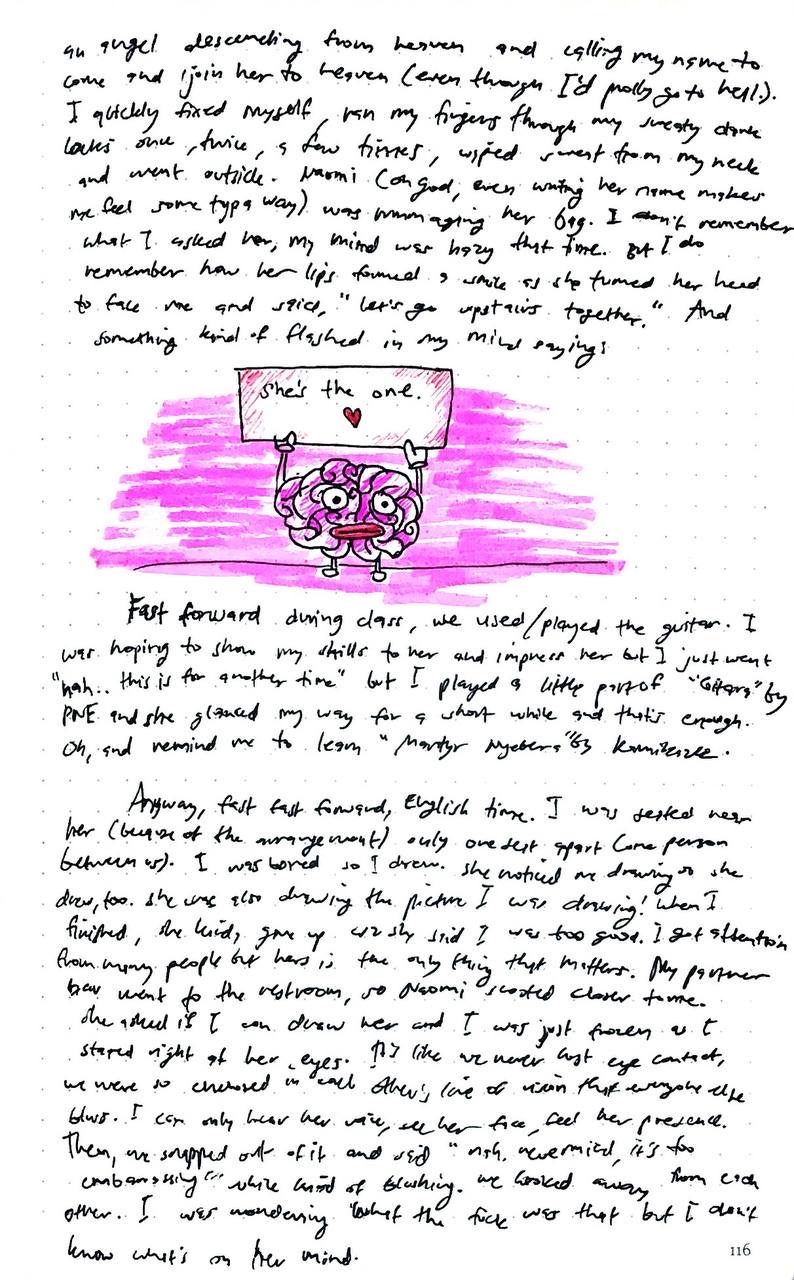 an angel descending from heaven and calling my name to
come and join her to heaven (even through I'd probly go to hell).
I quickly fixed myself, ran my fingers through my sweaty dark
locks once, twice, a few times, wiped sweat from my neck
and went outside. Naomi (oh god, even writing her name makes
me feel some typa way) was rummaging her bag. I don't remember
what I asked her, my mind was hazy that time. But I do
remember how her lips formed a smile as she turned her head
to face me and said, "Let's go upstairs together." And
something kind of flashed in my mind saying:
She's the one.
Fast forward during class, we used/played the guitar. I
was hoping to show my skills to her and impress her but I just went
"nah.. this is for another time" but I played a little part of "Gitara" by
PNE and she glanced my way for a short while and that's enough.
Oh, and remind me to learn "Martyr Nyebera" by Kamikazee.
Anyway, fast fast forward, English time. I was seated near
her (because of the arrangement) only one seat apart (one person
between us). I was bored so I drew. She noticed me drawing so she
drew, too. She was also drawing the picture I was drawing! When I
finished, she kinda gave up cuz she said I was too good. I get attention
from many people but hers is the only thing that matters. My partner
went to the restroom, so Naomi scooted closer to me.
She asked if I can draw her and I was just frozen as I
stared right at her eyes. It's like we never lost eye contact,
we were so in each other's line of vision that everyone else
blurs. I can only hear her voice, see her face, feel her presence.
Then, we snapped out of it and said "nah, nevermind, it's too
embarassing" while kind of blushing. We looked away from each
other. I was wondering what the fuck was that but I don't
know what's on her mind.
116